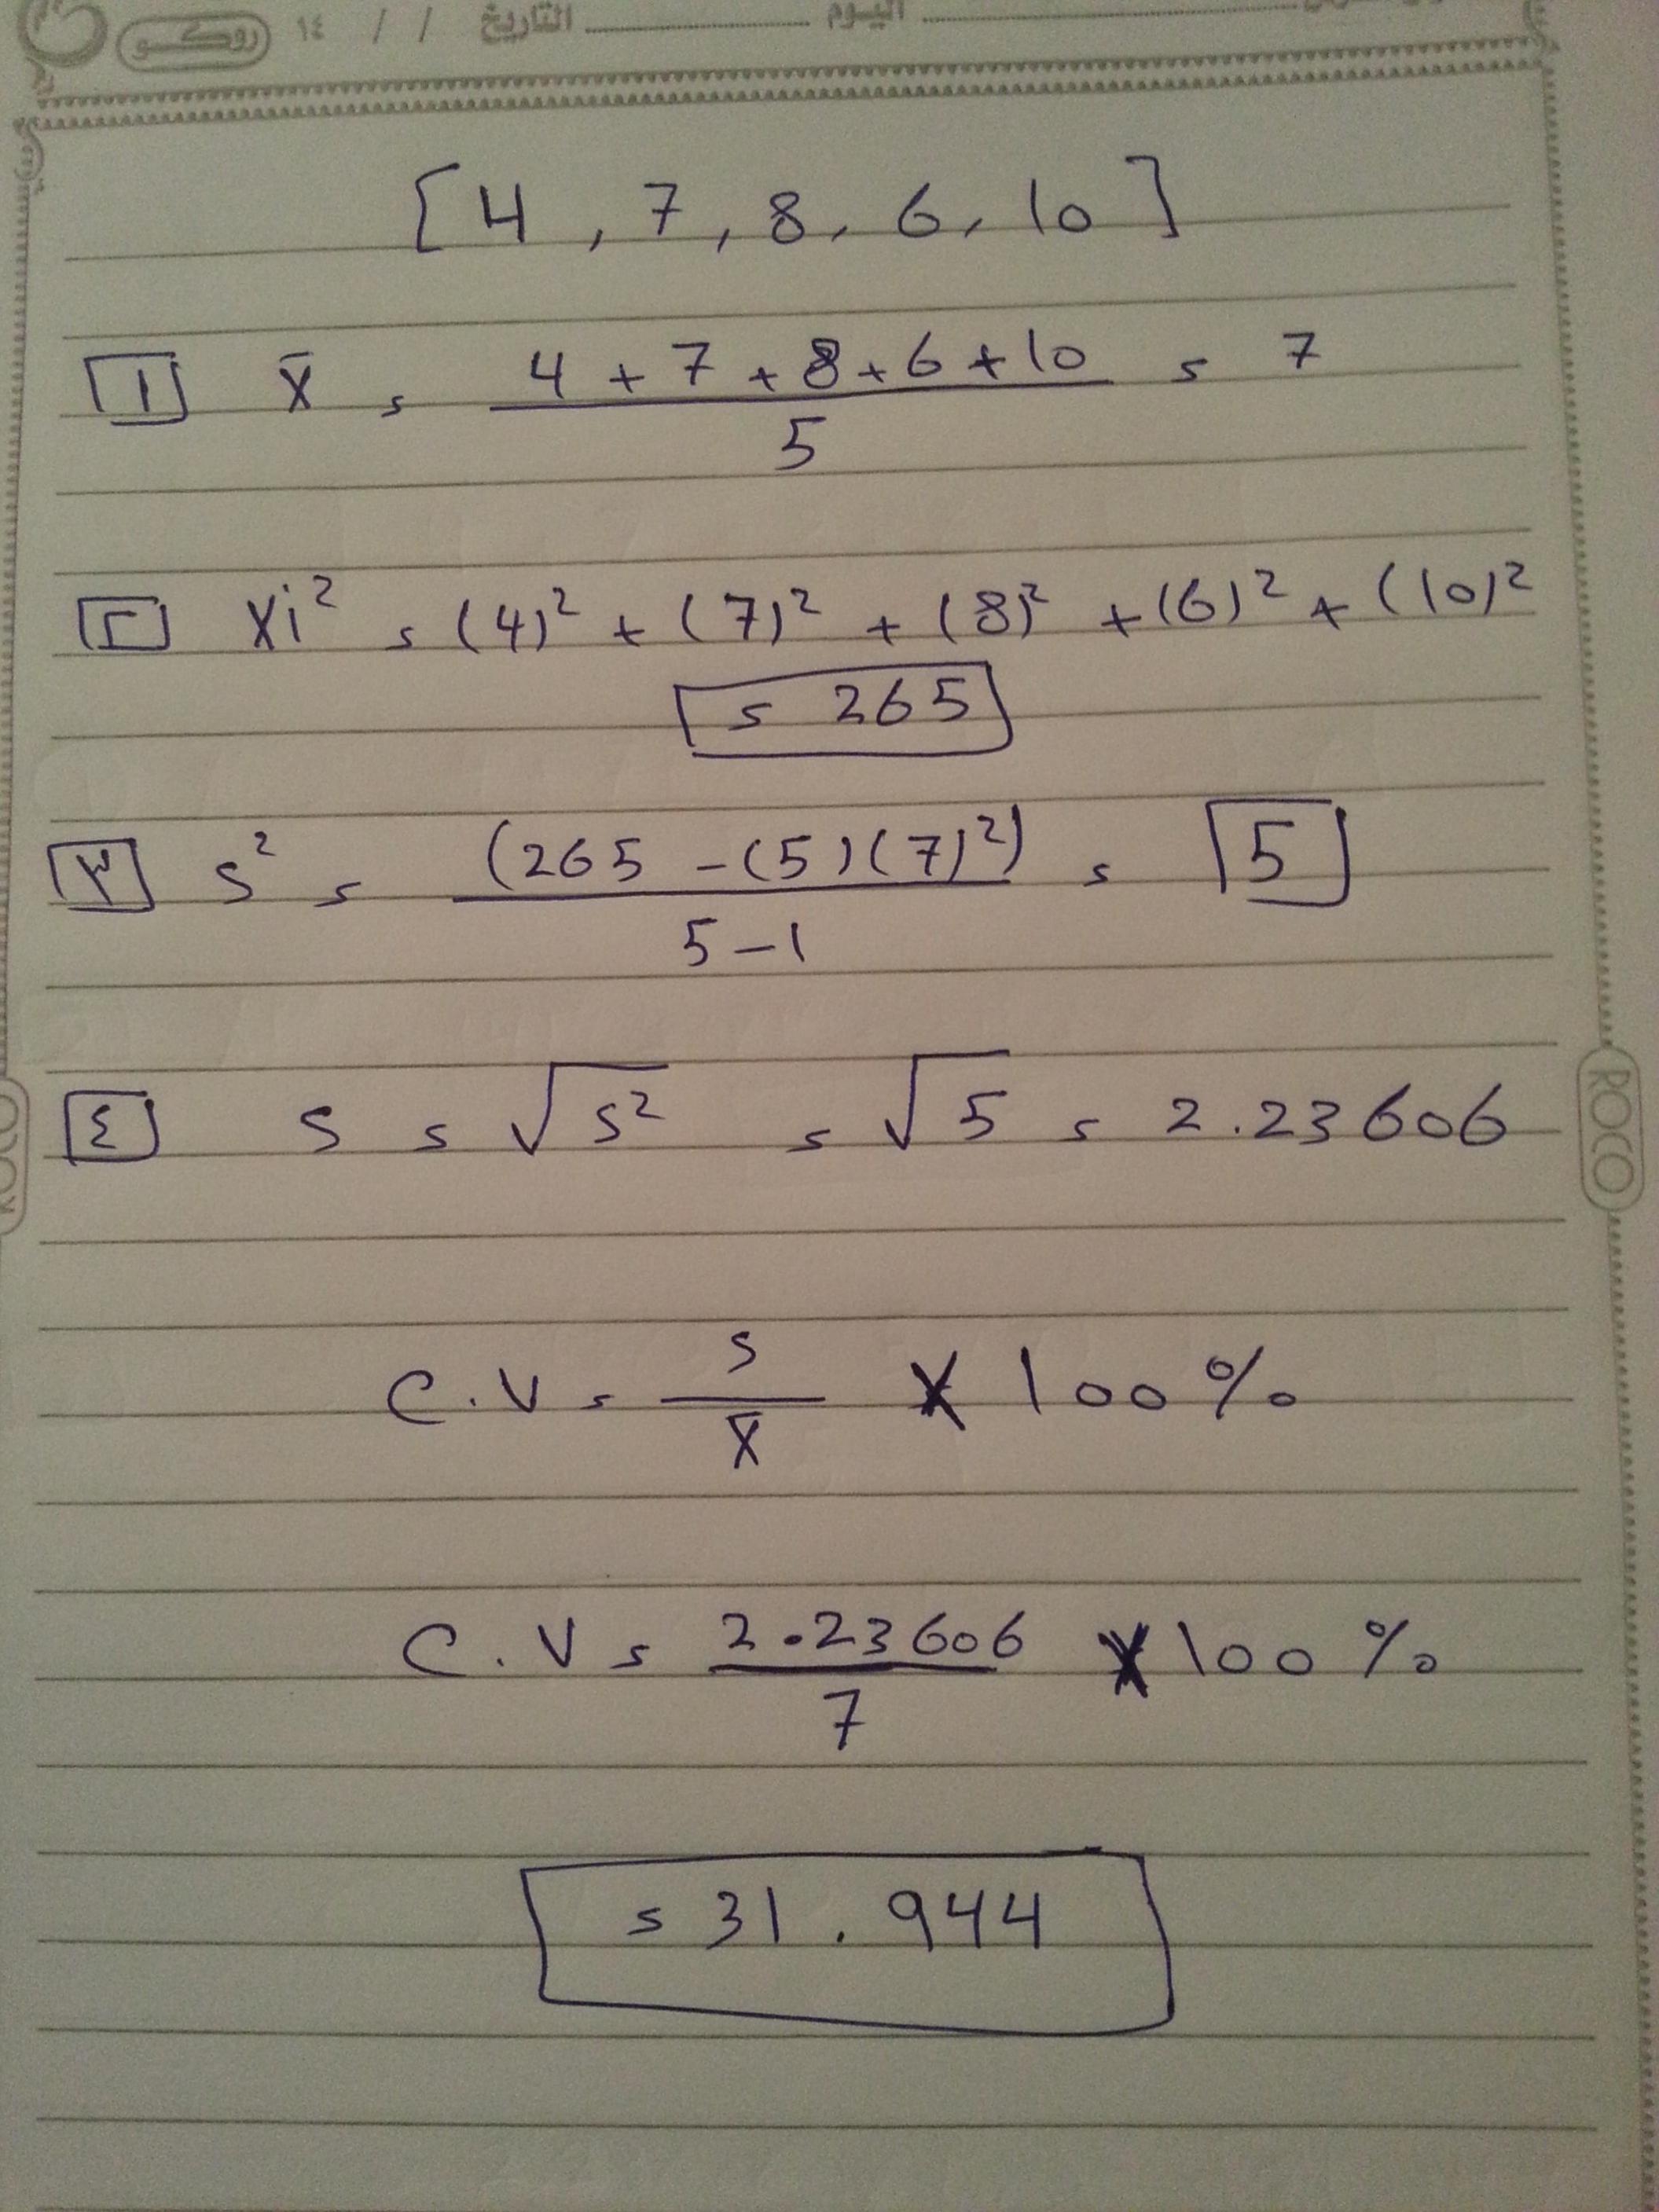 روكو ١٤ / / التاريخ اليوم
[4 , 7 , 8 , 6 , 10]
١ x̄ = (4 + 7 + 8 + 6 + 10) / 5 = 7
٢ xi² = (4)² + (7)² + (8)² + (6)² + (10)²
= 265
٣ s² = (265 - (5)(7)²) / (5 - 1) = 5
٤ s = √s² = √5 = 2.23606
ROCO
C.V = s / x̄ × 100 %
C.V = 2.23606 / 7 × 100 %
= 31.944